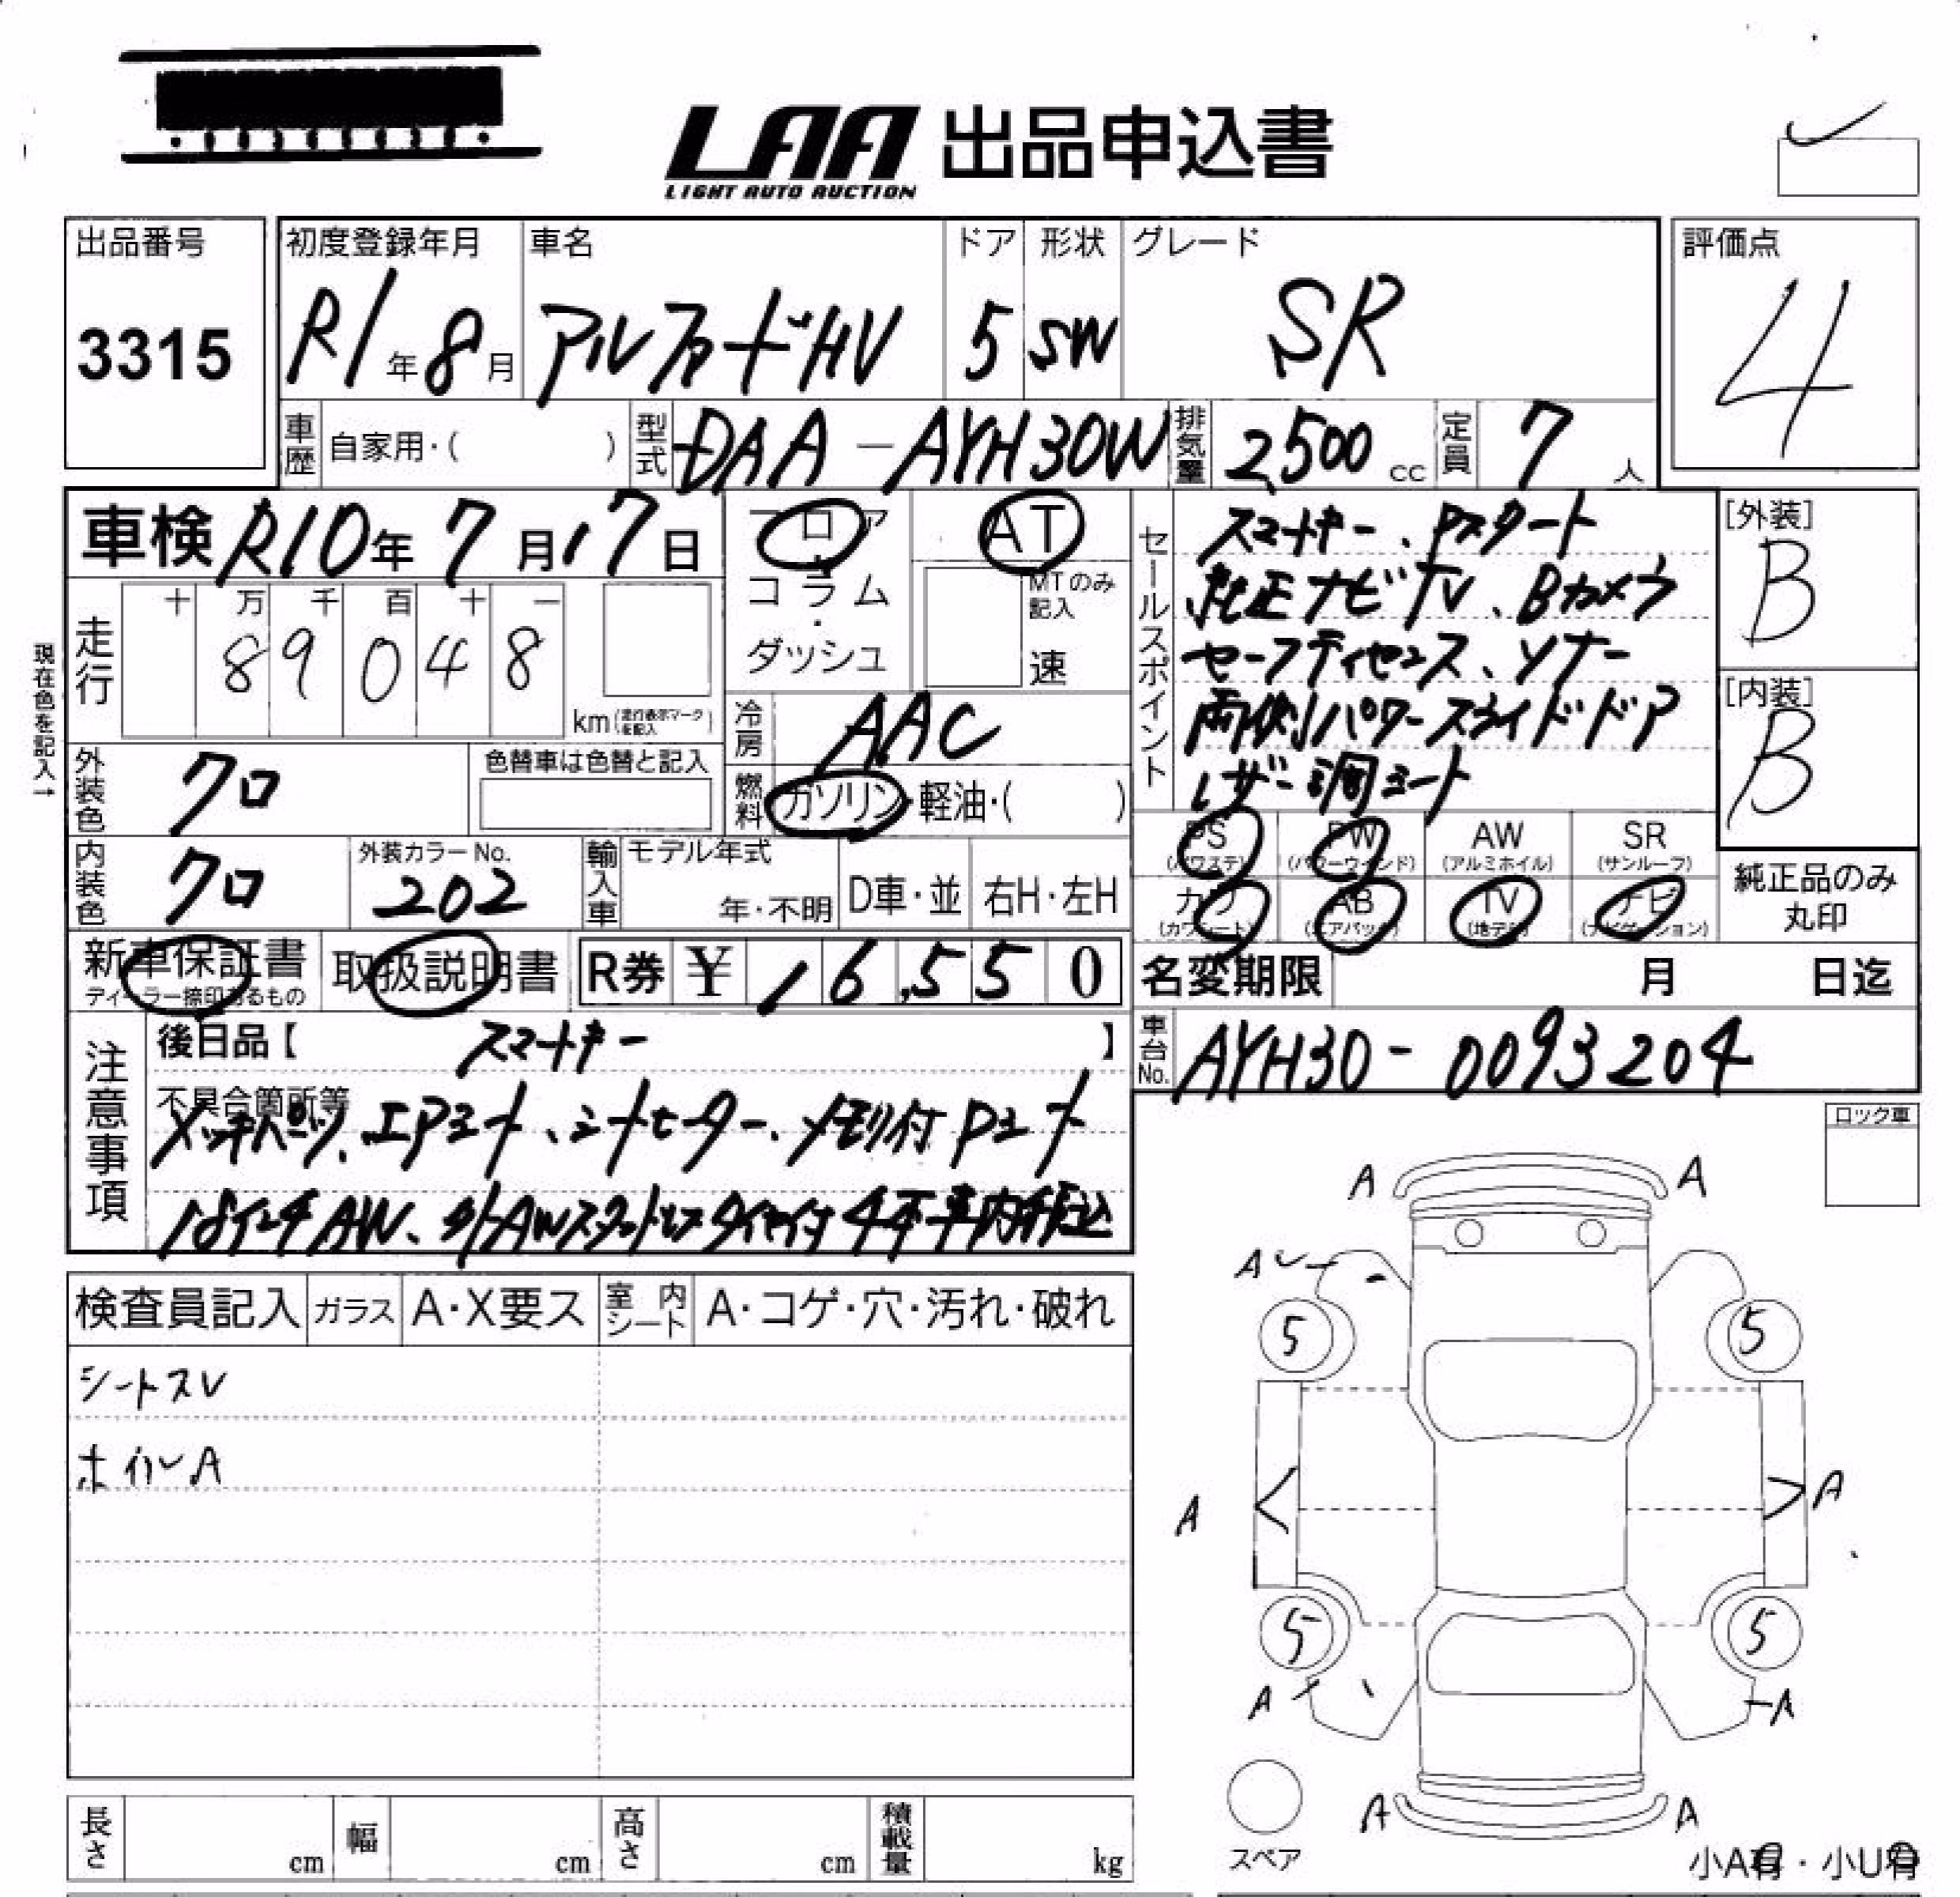 LAA 出品申込書
LIGHT AUTO AUCTION
出品番号
3315
初度登録年月 車名 ドア 形状 グレード
R1年8月 アルファードHV 5 SW SR
評価点
4
車歴 自家用・( ) 型式 DAA-AYH30W 排気量 2,500cc 定員 7人
車検 R10年7月17日
フロア AT
コラム MTのみ記入
ダッシュ 速
走行
十 万 千 百 十 一
8 9 0 4 8
km (走行表示マークを記入)
現在色を記入→
冷房 AAC
燃料 ガソリン・軽油・( )
外装色 クロ 色替車は色替と記入
内装色 クロ 外装カラーNo. 202
輸入車 モデル年式 年・不明 D車・並 右H・左H
セールスポイント
スマートキー、Pスタート
純正ナビTV、Bカメラ
セーフティセンス、ソナー
両側パワースライドドア
レザー調シート
[外装]
B
[内装]
B
PS (パワステ) PW (パワーウィンド) AW (アルミホイル) SR (サンルーフ)
カワ (カワシート) AB (エアバック) TV (地デジ) ナビ (ナビゲーション)
純正品のみ丸印
新車保証書 取扱説明書 R券 ¥ 16,550
ディーラー捺印あるもの
名変期限 月 日迄
車台No. AYH30-0093204
注意事項
後日品【 スマートキー 】
不具合箇所等
、エアシート、シートヒーター、メモリ付Pシート
18インチAW、外AWスタッドレスタイヤ付4本車内積込
ロック車
検査員記入 ガラス A・X要ス 室内シート A・コゲ・穴・汚れ・破れ
シートスレ
ホイルA
A A
A
5 5
A A
5 5
A A
A A
スペア
小A有・小U有
長さ cm 幅 cm 高さ cm 積載量 kg